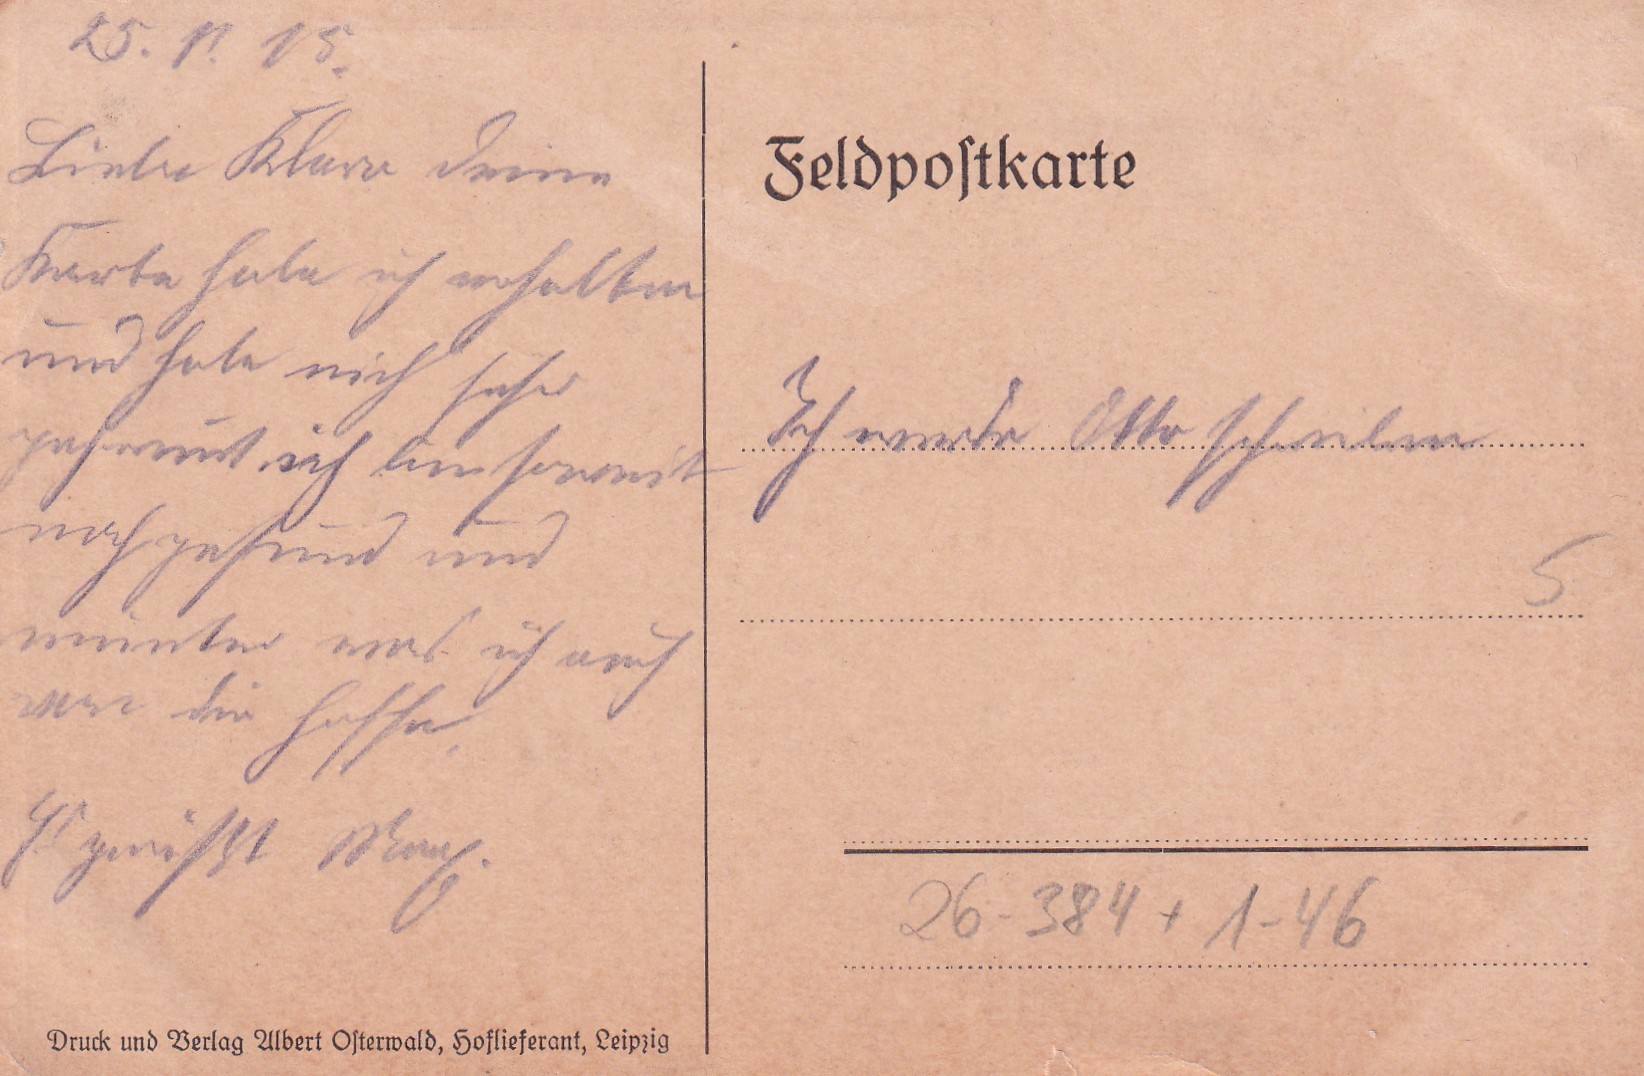 25. 11. 15.
Liebe Klara Deine
Karte habe ich erhalten
und habe mich sehr
gefreut. ich bin soweit
noch gesund und
munter was ich auch
von dir hoffe.
Es grüßt Max.
Druck und Verlag Albert Osterwald, Hoflieferant, Leipzig
Feldpostkarte
Ich werde Otto schreiben
5
26-384 + 1-46